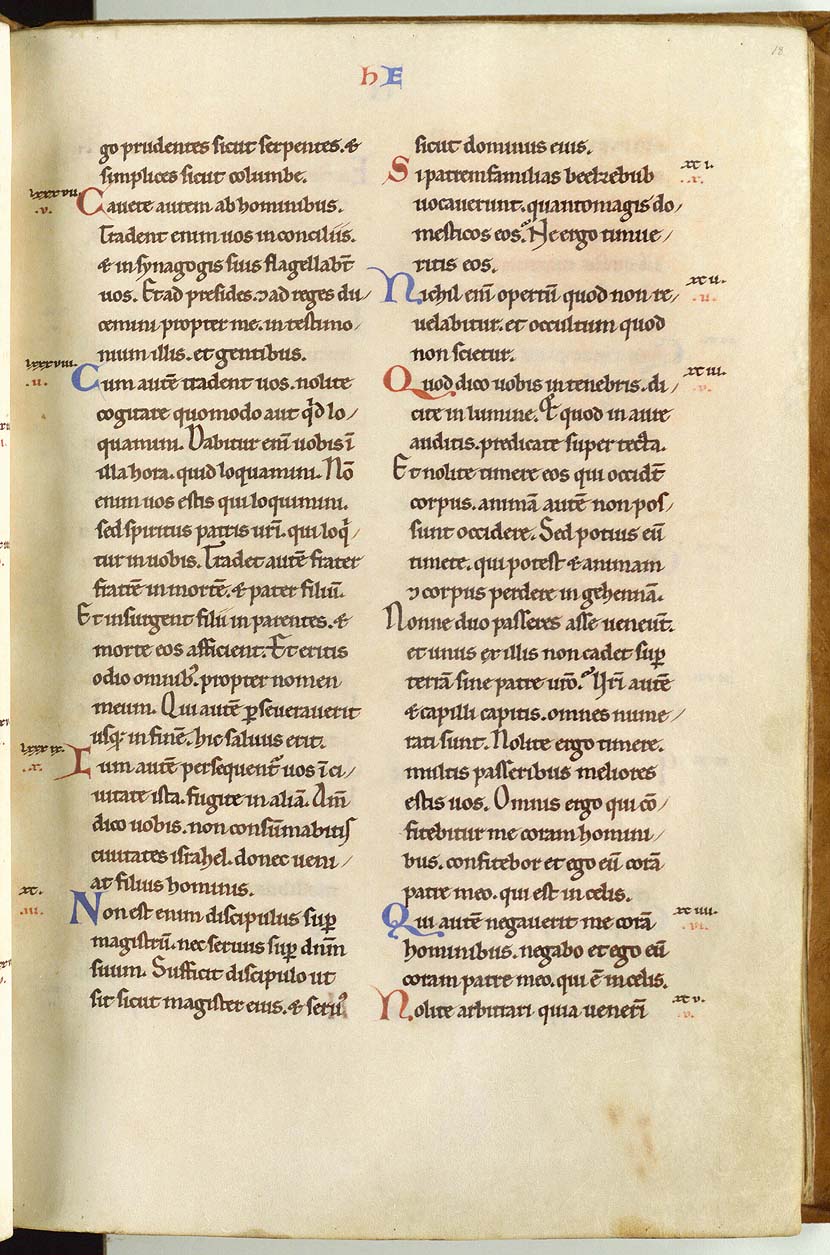 18
hE
go prudentes sicut serpentes. &
simplices sicut columbe.
lxxxvii.
.v.
Cavete autem ab hominibus.
Tradent enim uos in conciliis.
& in synagogis suis flagellabt̄
uos. Et ad presides. ⁊ ad reges du/
cemini propter me. in testimo/
nium illis. et gentibus.
lxxxviii.
.ii.
Cum autē tradent uos. nolite
cogitare quomodo aut qid lo/
quamini. Dabitur eni᷒ uobis ī
illa hora. quid loquamini. Nō
enim uos estis qui loquimini.
sed spiritus patris ur̄i. qui loqi/
tur in uobis. Tradet autē frater
fratrē in mortē. & pater filiū.
Et insurgent filii in parentes. &
morte eos afficient. Et eritis
odio omnib᷒. propter nomen
meum. Qui autē ꝑseuerauerit
usq; in finē. hic saluus erit.
lxxxix.
.x.
Cum autē persequentᷣ uos ī ci/
uitate ista. fugite in aliā. Am̄
dico uobis. non consūmabitis
ciuitates israhel. donec ueni/
at filius hominis.
xc.
.iii.
Non est enim discipulus suꝑ
magistrū. nec seruus suꝑ dn̄m
suum. Sufficit discipulo ut
sit sicut magister eius. & seru᷒
sicut dominus eius.
xc i.
.x.
Si patremfamilias beelzebub
uocauerunt. quantomagis do/
mesticos eos᷒. Ne ergo timue/
ritis eos.
xc ii.
.ii.
Nichil eni᷒ opertū quod non re/
uelabitur. et occultum quod
non scietur.
xc iii.
.v.
Quod dico uobis in tenebris. di/
cite in lumine. Et quod in aure
auditis. predicate super tecta.
Et nolite timere eos qui occidt̄
corpus. animā autē non pos/
sunt occidere. Sed potius eū
timete. qui potest & animam
⁊ corpus perdere in gehennā.
Nonne duo passeres asse ueneūt.
et unus ex illis non cadet suꝑ
terrā sine patre ur̄o. Ur̄i autē
& capilli capitis. omnes nume/
rati sunt. Nolite ergo timere.
multis passeribus meliores
estis uos. Omnis ergo qui cō/
fitebitur me coram homini/
bus. confitebor et ego eū corā
patre meo. qui est in celis.
xc iiii.
.vi.
Qui autē negauerit me corā
hominibus. negabo et ego eū
coram patre meo. qui ē in celis.
xc v.
.v.
Nolite arbitrari quia uener̄i